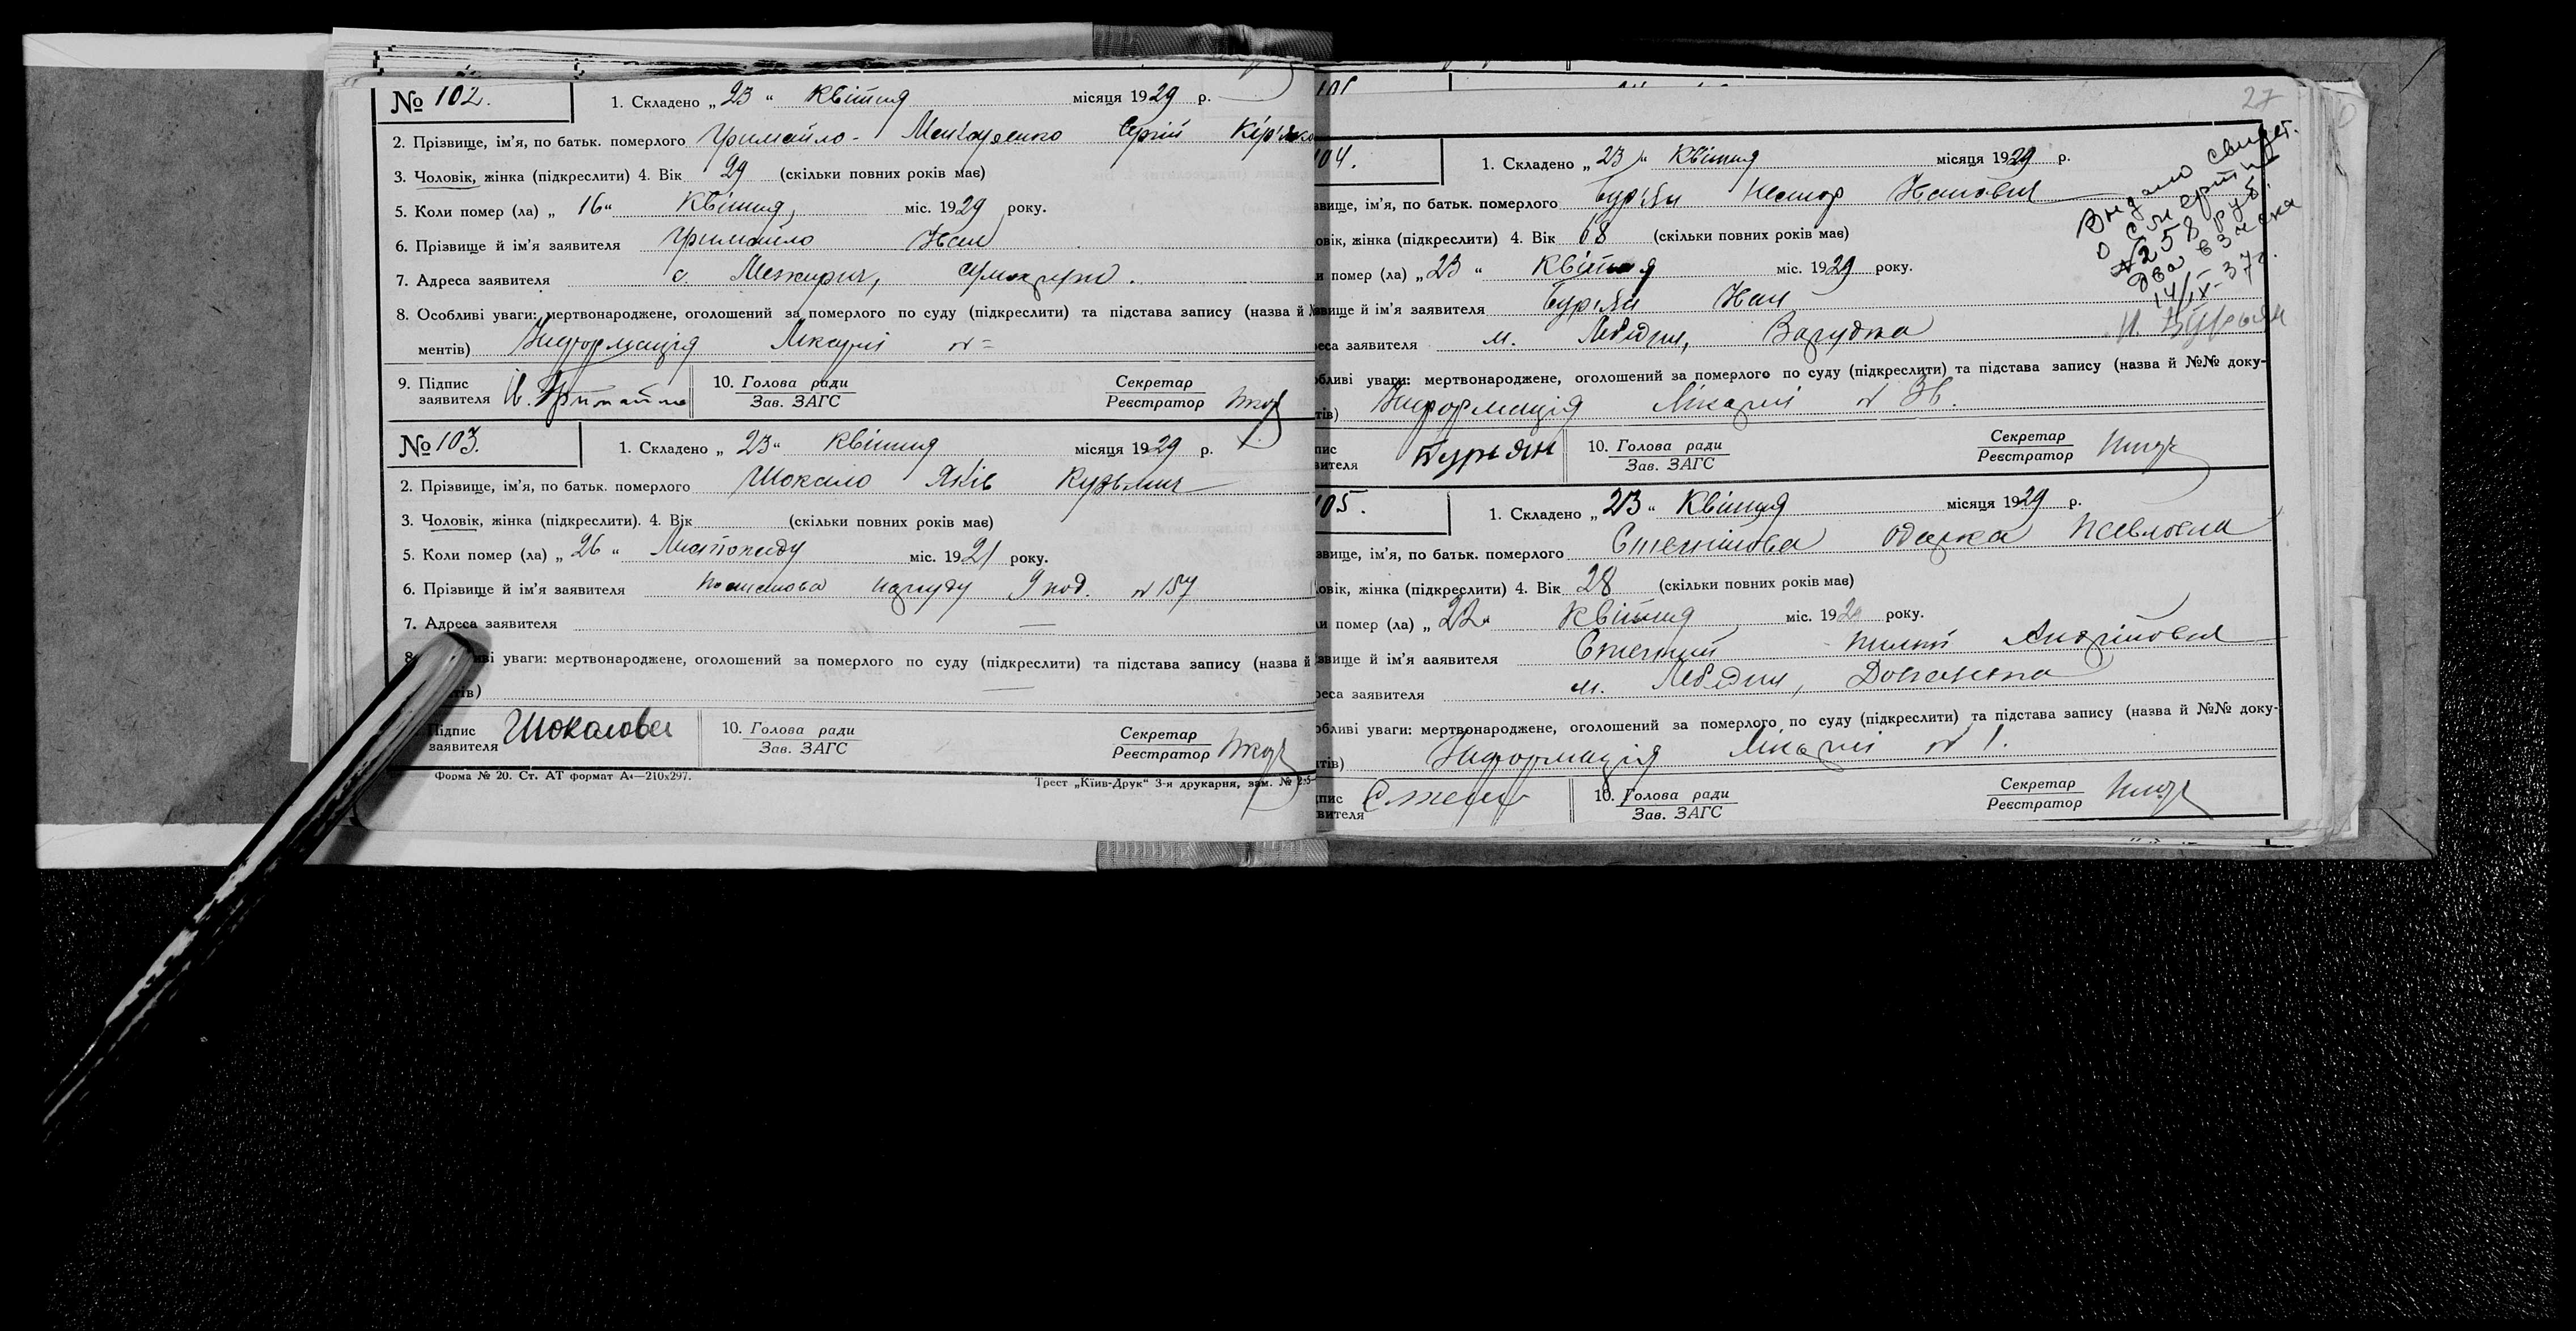 № 102.
1. Складено „ 23 “ Квітня місяця 1929 р.
2. Прізвище, ім'я, по батьк. померлого Гримайло- Сергій Кір'яко
3. Чоловік, жінка (підкреслити) 4. Вік 29 (скільки повних років має)
5. Коли помер (ла) „ 16 “ Квітня, міс. 1929 року.
6. Прізвище й ім'я заявителя Гримайло Іван
7. Адреса заявителя с. Межирич,
8. Особливі уваги: мертвонароджене, оголошений за померлого по суду (підкреслити) та підстава запису (назва й
ментів) Інформація Лікарні № =
9. Підпис заявителя И. Гримайло
10. Голова ради
Зав. ЗАГС
Секретар
Реєстратор
№ 103.
1. Складено „ 23 “ Квітня місяця 1929 р.
2. Прізвище, ім'я, по батьк. померлого Шокало Яків Кузьмич
3. Чоловік, жінка (підкреслити). 4. Вік (скільки повних років має)
5. Коли помер (ла) „ 26 “ Листопаду міс. 1921 року.
6. Прізвище й ім'я заявителя Постанова нарсуду № 157
7. Адреса заявителя —
8. ві уваги: мертвонароджене, оголошений за померлого по суду (підкреслити) та підстава запису (назва й
тів) —
Підпис заявителя Шокалова
10. Голова ради
Зав. ЗАГС
Секретар
Реєстратор
Форма № 20. Ст. АТ формат А4—210х297.
Трест „Київ-Друк“ 3-я друкарня, зам. №
101
27
04.
1. Складено „ 23 “ Квітня місяця 1929 р.
звище, ім'я, по батьк. померлого Бур'ян Нестор Іванович
овік, жінка (підкреслити) 4. Вік 68 (скільки повних років має)
и помер (ла) „ 23 “ Квітня міс. 1929 року.
звище й ім'я заявителя Бур'ян Іван
реса заявителя м. Лебедин,
обливі уваги: мертвонароджене, оголошений за померлого по суду (підкреслити) та підстава запису (назва й №№ доку-
тів) Інформація Лікарні №
пис
вителя Бурьян
10. Голова ради
Зав. ЗАГС
Секретар
Реєстратор
Видано свидет.
о смерти
№ 258
два руб.
взыскано
14/IX-37г.
И. Бурьян
05.
1. Складено „ 23 “ Квітня місяця 1929 р.
звище, ім'я, по батьк. померлого Одарка Павловна
овік, жінка (підкреслити) 4. Вік 28 (скільки повних років має)
и помер (ла) „ 22 “ Квітня міс. 192 року.
звище й ім'я заявителя Андрійович
реса заявителя м. Лебедин,
обливі уваги: мертвонароджене, оголошений за померлого по суду (підкреслити) та підстава запису (назва й №№ доку-
тів) Інформація Лікарні № 1.
пис
вителя
10. Голова ради
Зав. ЗАГС
Секретар
Реєстратор